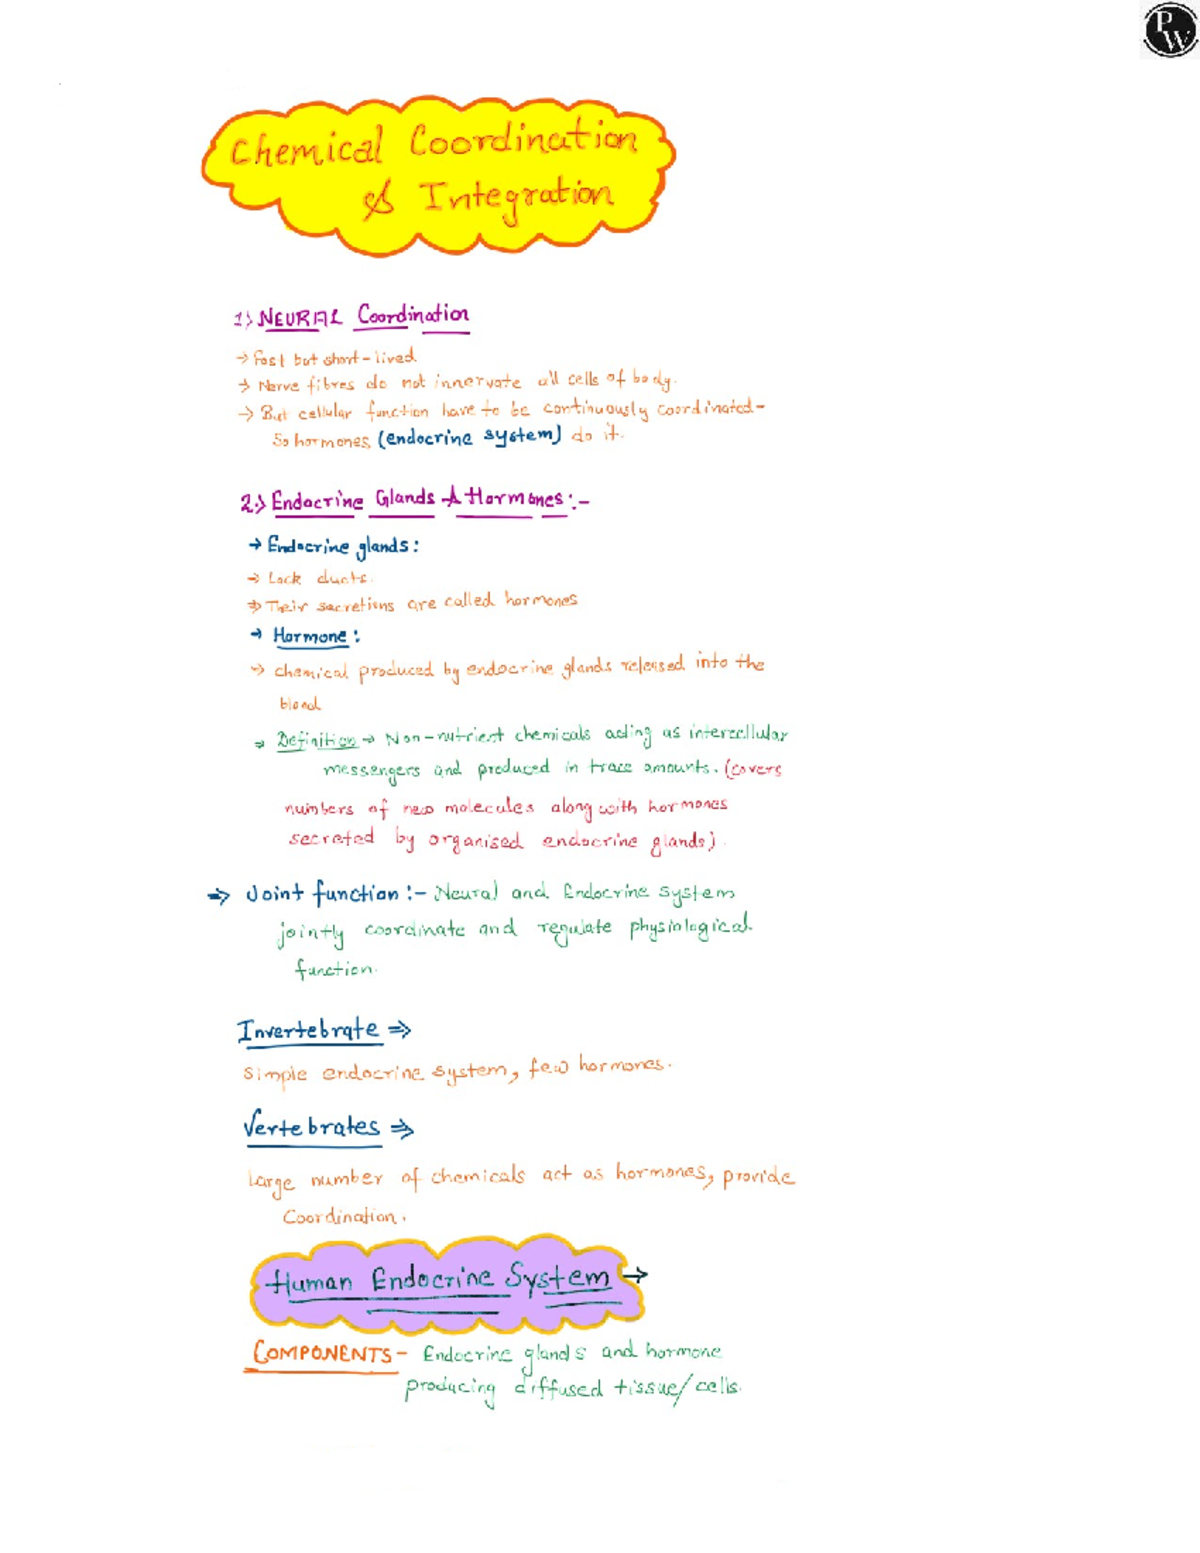 PW
Chemical Coordination
& Integration
1) NEURAL Coordination
→ Fast but short-lived.
→ Nerve fibres do not innervate all cells of body.
→ But cellular function have to be continuously coordinated-
So hormones (endocrine system) do it.
2.) Endocrine Glands & Hormones:-
→ Endocrine glands:
→ Lack ducts.
→ Their secretions are called hormones
→ Hormone:
→ chemical produced by endocrine glands released into the
blood
→ Definition → Non-nutrient chemicals acting as intercellular
messengers and produced in trace amounts. (covers
numbers of new molecules along with hormones
secreted by organised endocrine glands).
⇒ Joint function:- Neural and Endocrine system
jointly coordinate and regulate physiological
function.
Invertebrate ⇒
Simple endocrine system, few hormones.
Vertebrates ⇒
Large number of chemicals act as hormones, provide
Coordination.
Human Endocrine System →
COMPONENTS- Endocrine glands and hormone
producing diffused tissue/cells.